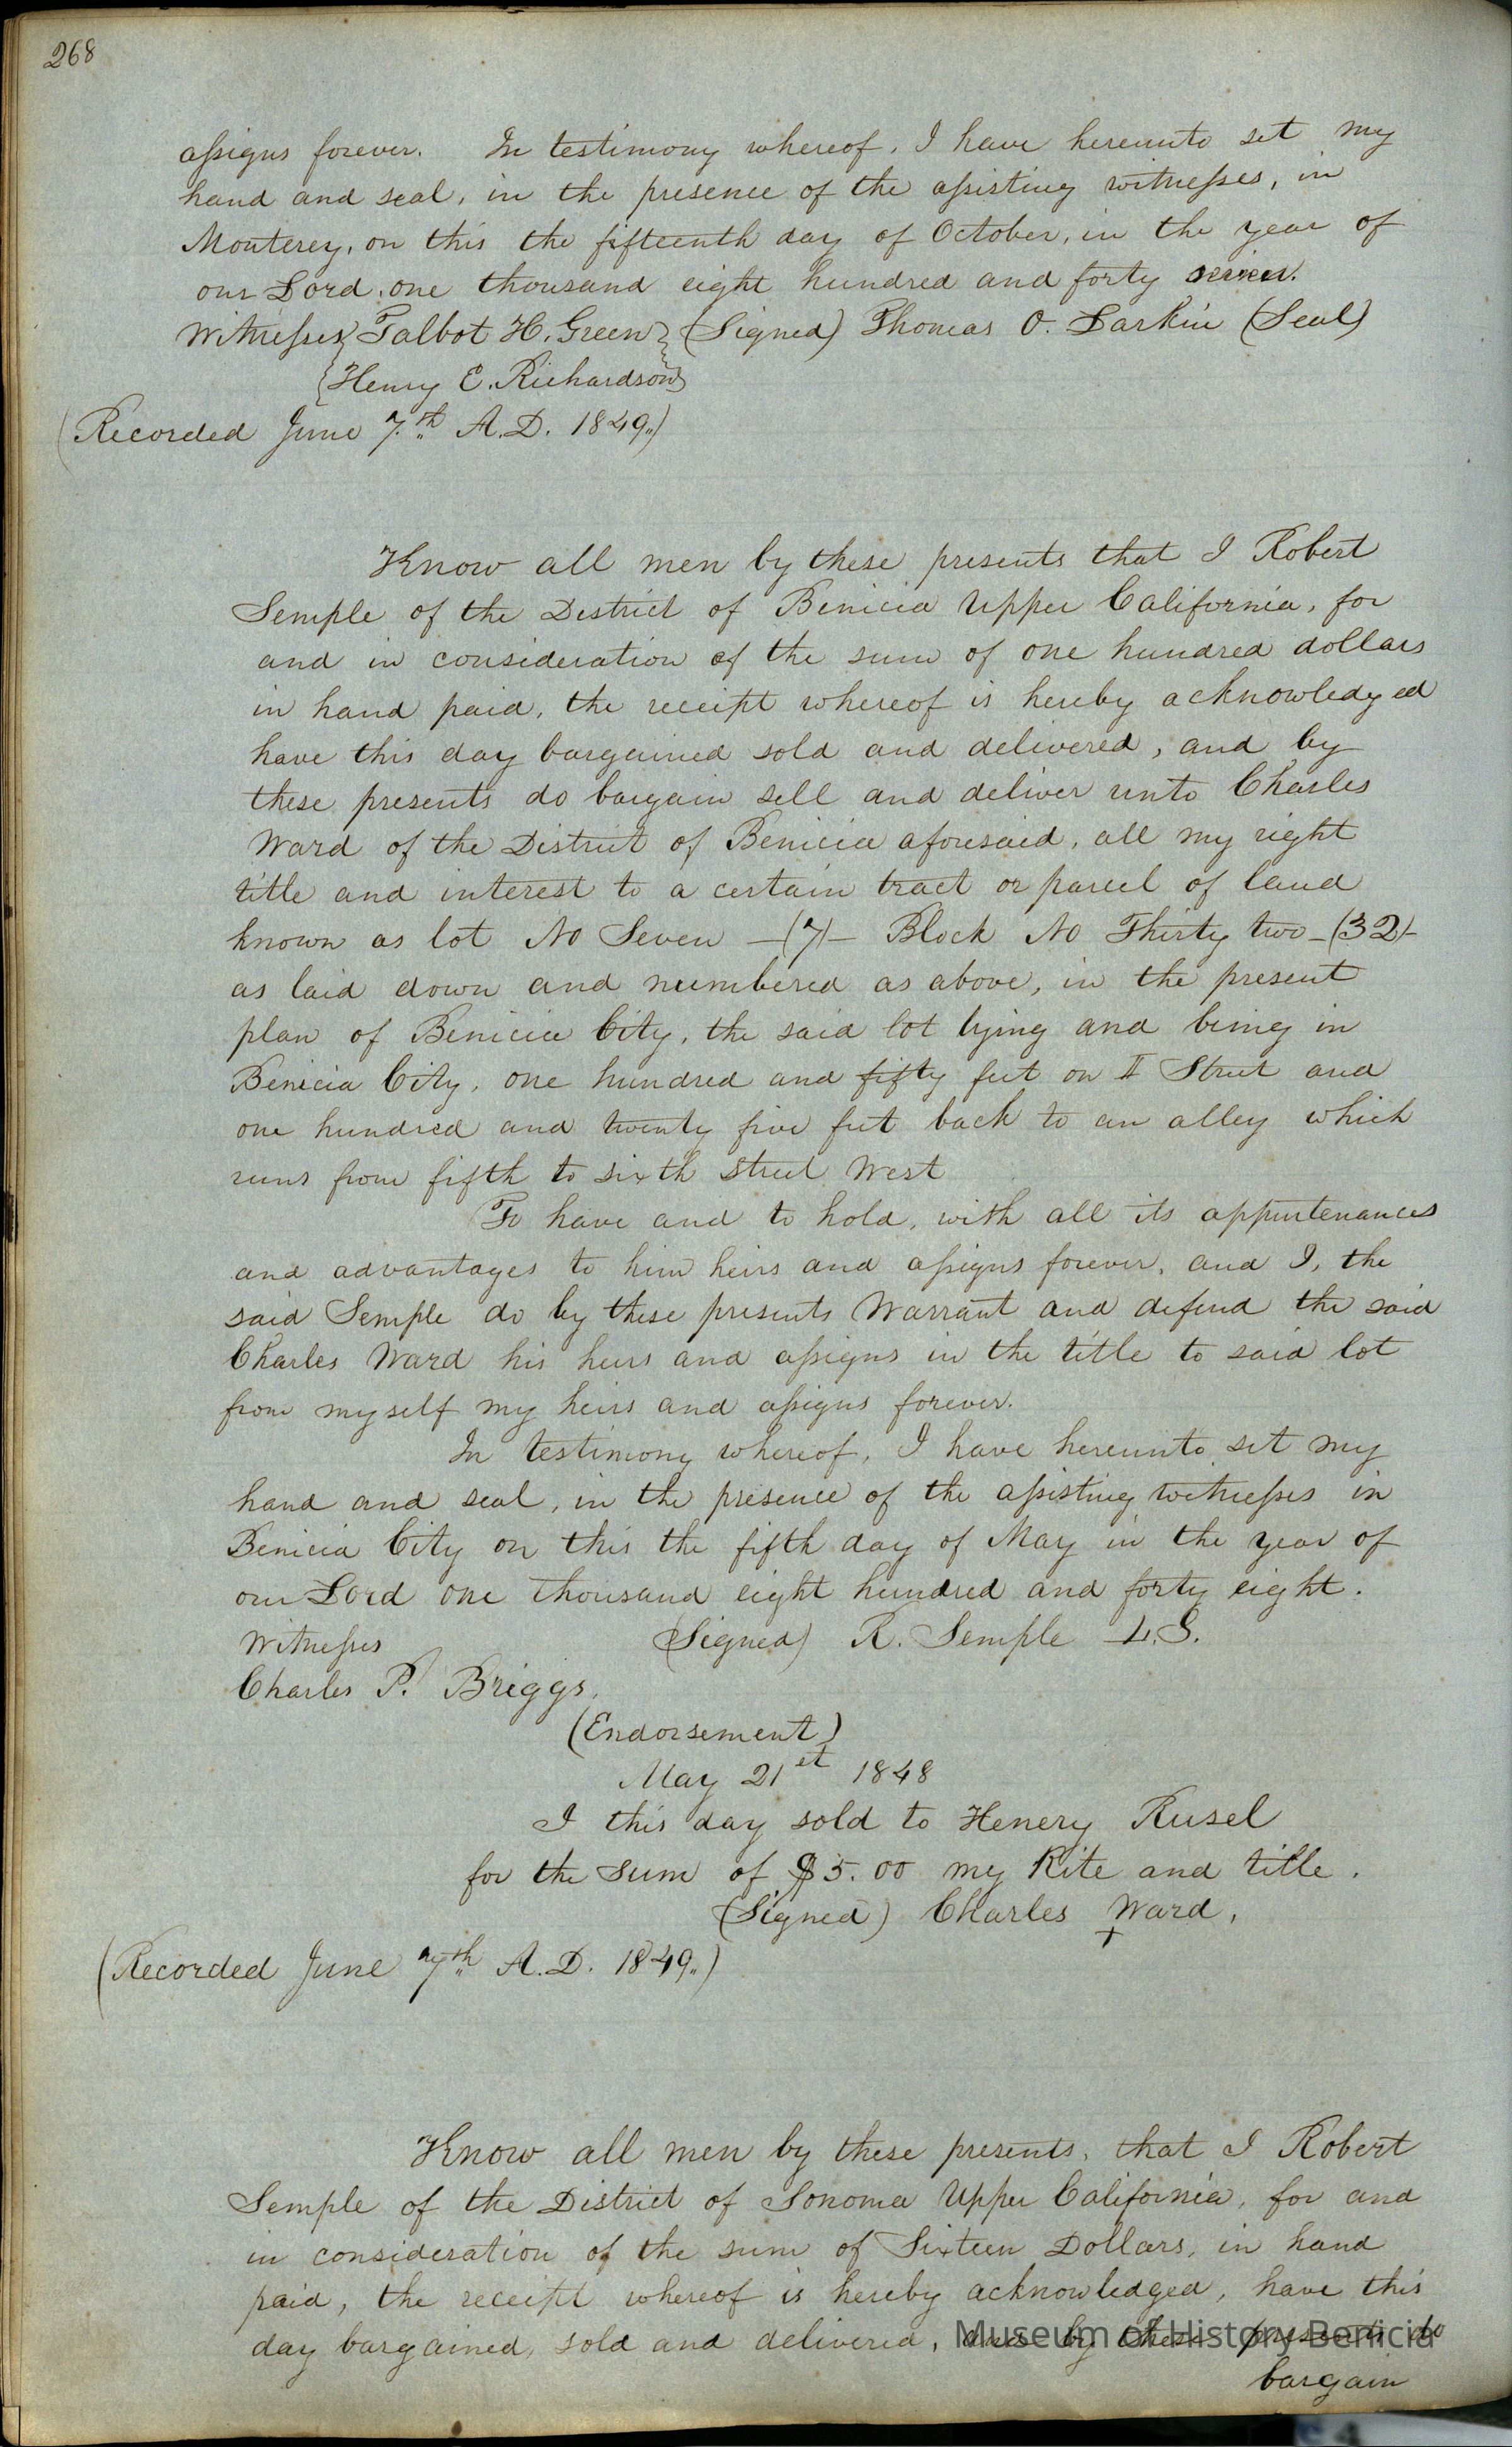 268
assigns forever. In testimony whereof, I have hereunto set my
hand and seal, in the presence of the assisting witnesses, in
Monterey, on this the fifteenth day of October, in the year of
our Lord, one thousand eight hundred and forty seven.
Witnesses { Talbot H. Green } (Signed) Thomas O. Larkin (Seal)
{ Henry E. Richardson }
(Recorded June 7.th A.D. 1849.)
Know all men by these presents that I Robert
Semple of the District of Benicia Upper California, for
and in consideration of the sum of one hundred dollars
in hand paid, the receipt whereof is hereby acknowledged
have this day bargained sold and delivered, and by
these presents do bargain sell and deliver unto Charles
Ward of the District of Benicia aforesaid, all my right
title and interest to a certain tract or parcel of land
known as lot No Seven —(7)— Block No Thirty two —(32)—
as laid down and numbered as above, in the present
plan of Benicia City, the said lot lying and being in
Benicia City, one hundred and fifty feet on I Street and
one hundred and twenty five feet back to an alley which
runs from fifth to sixth street West
To have and to hold, with all its appurtenances
and advantages to him heirs and assigns forever, and I, the
said Semple do by these presents Warrant and defend the said
Charles Ward his heirs and assigns in the title to said lot
from myself my heirs and assigns forever.
In testimony whereof, I have hereunto set my
hand and seal, in the presence of the assisting witnesses in
Benicia City on this the fifth day of May in the year of
our Lord one thousand eight hundred and forty eight.
Witnesses (Signed) R. Semple L.S.
Charles P. Briggs.
(Endorsement)
May 21st 1848
I this day sold to Henery Rusel
for the Sum of $5.00 my Rite and title.
(Signed) Charles Ward.
+
(Recorded June 7th A.D. 1849.)
Know all men by these presents, that I Robert
Semple of the District of Sonoma Upper California, for and
in consideration of the sum of Sixteen Dollars, in hand
paid, the receipt whereof is hereby acknowledged, have this
day bargained, sold and delivered, and by these presents do
bargain
Museum of History Benicia